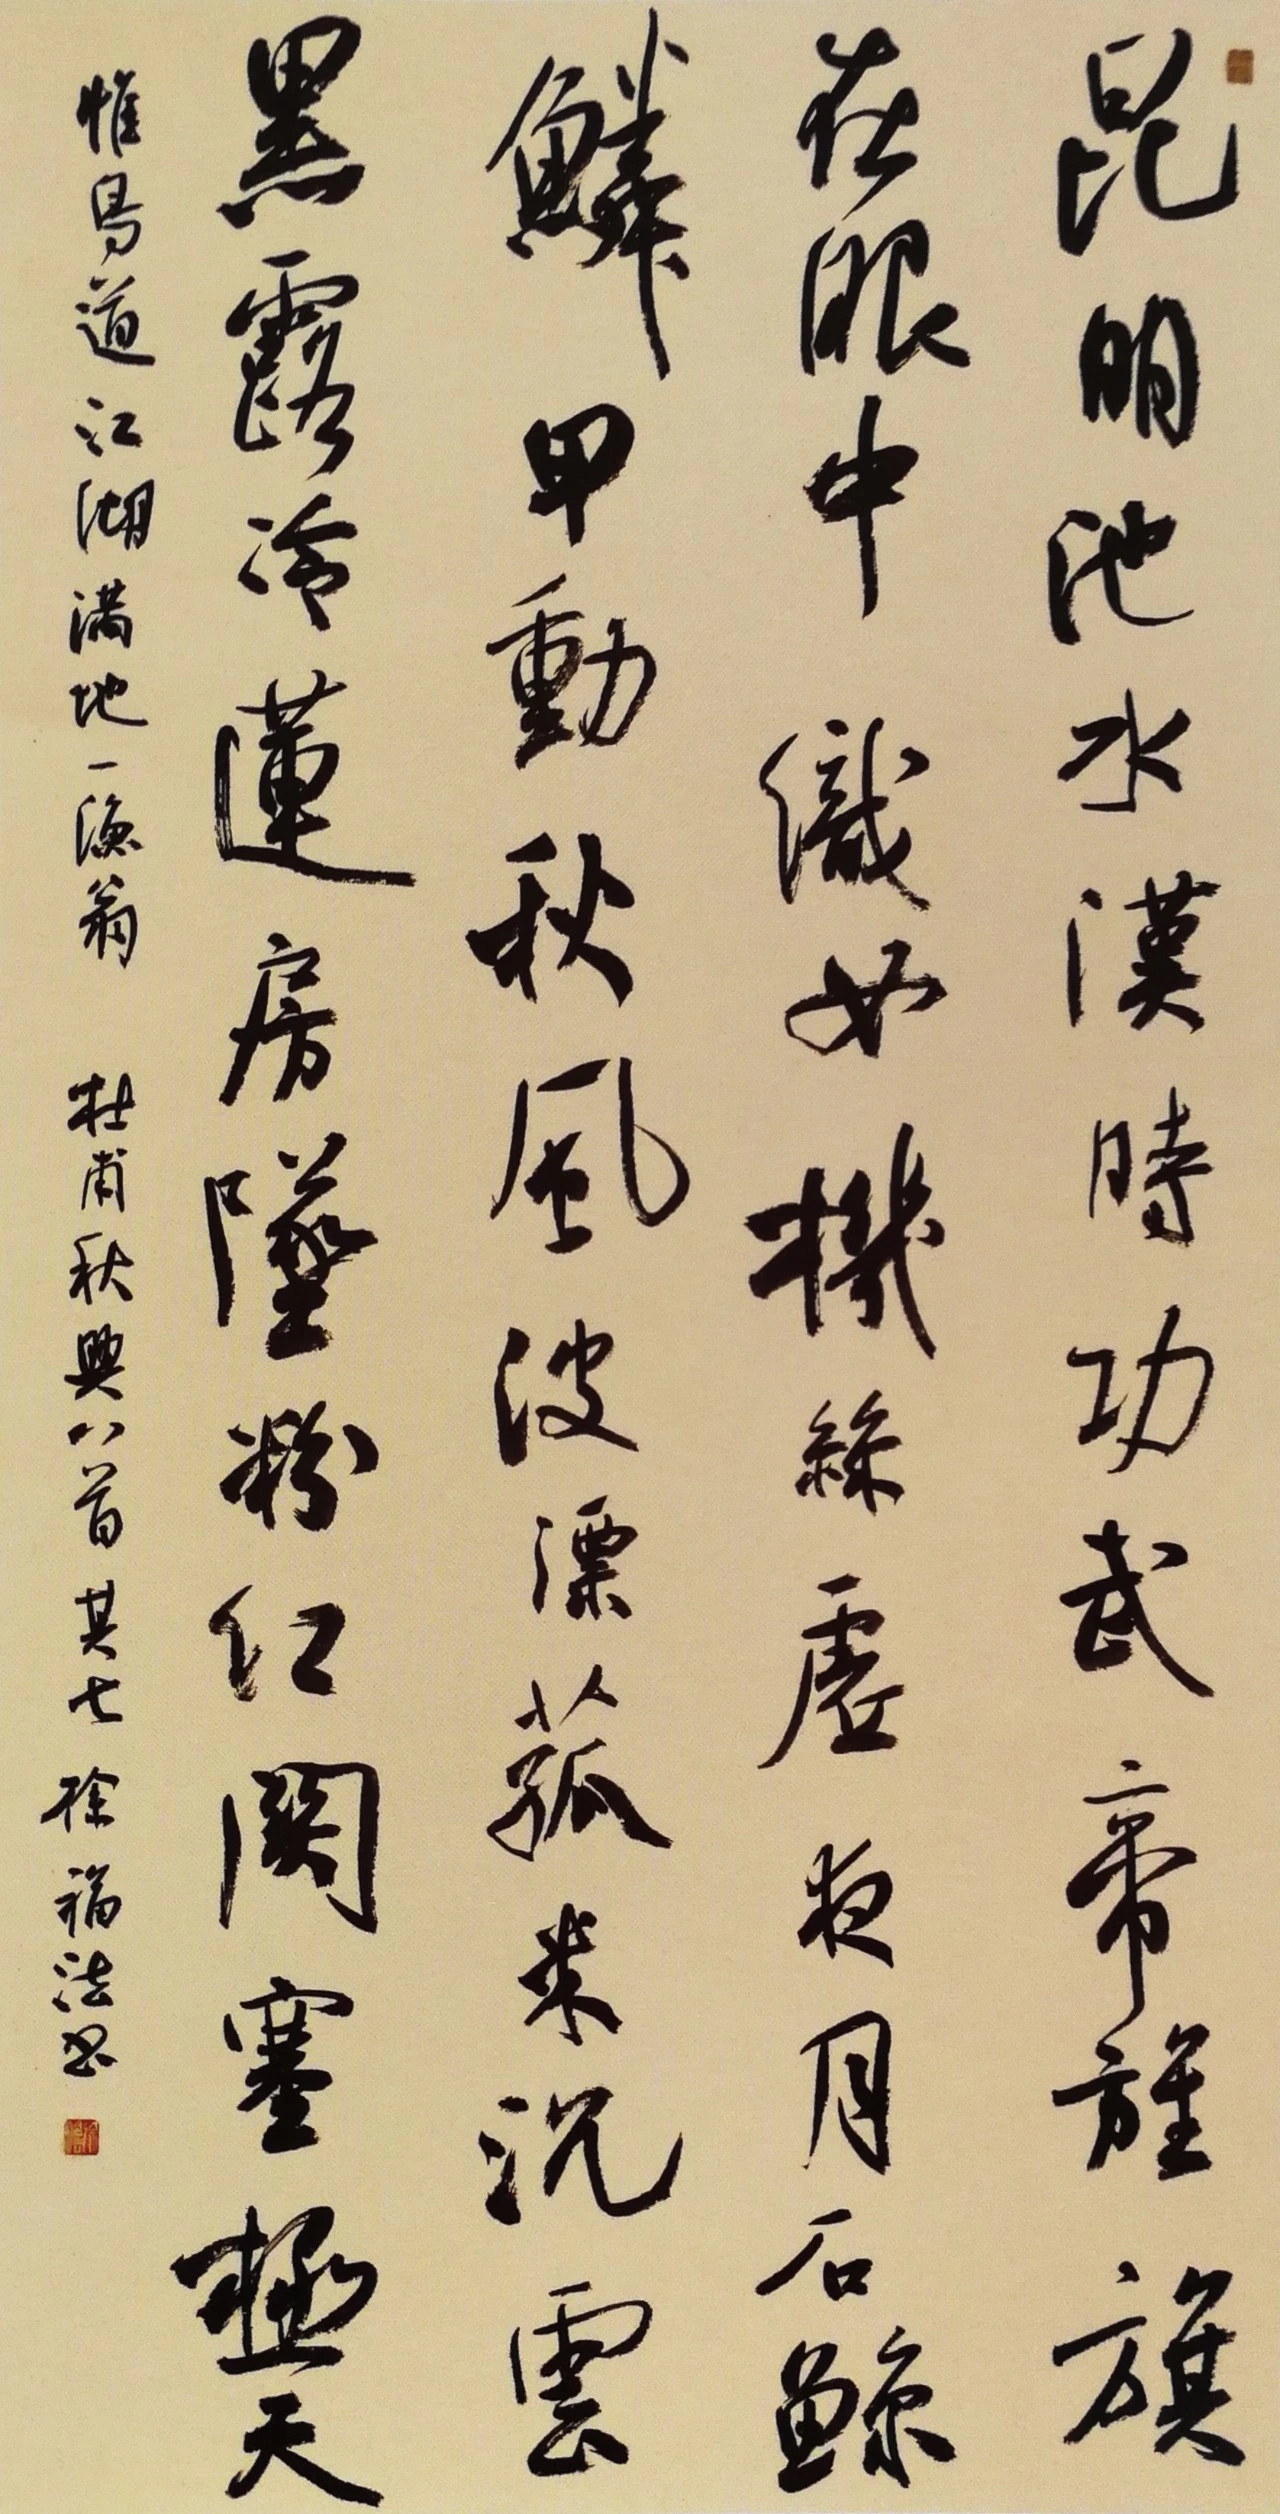 昆明池水漢時功武帝旌旗
在眼中織女機絲虛夜月石鯨
鱗甲動秋風波漂菰米沉雲
黑露冷蓮房墜粉红關塞極天
惟鳥道江湖满地一漁翁 杜甫秋興八首其七 徐福法书